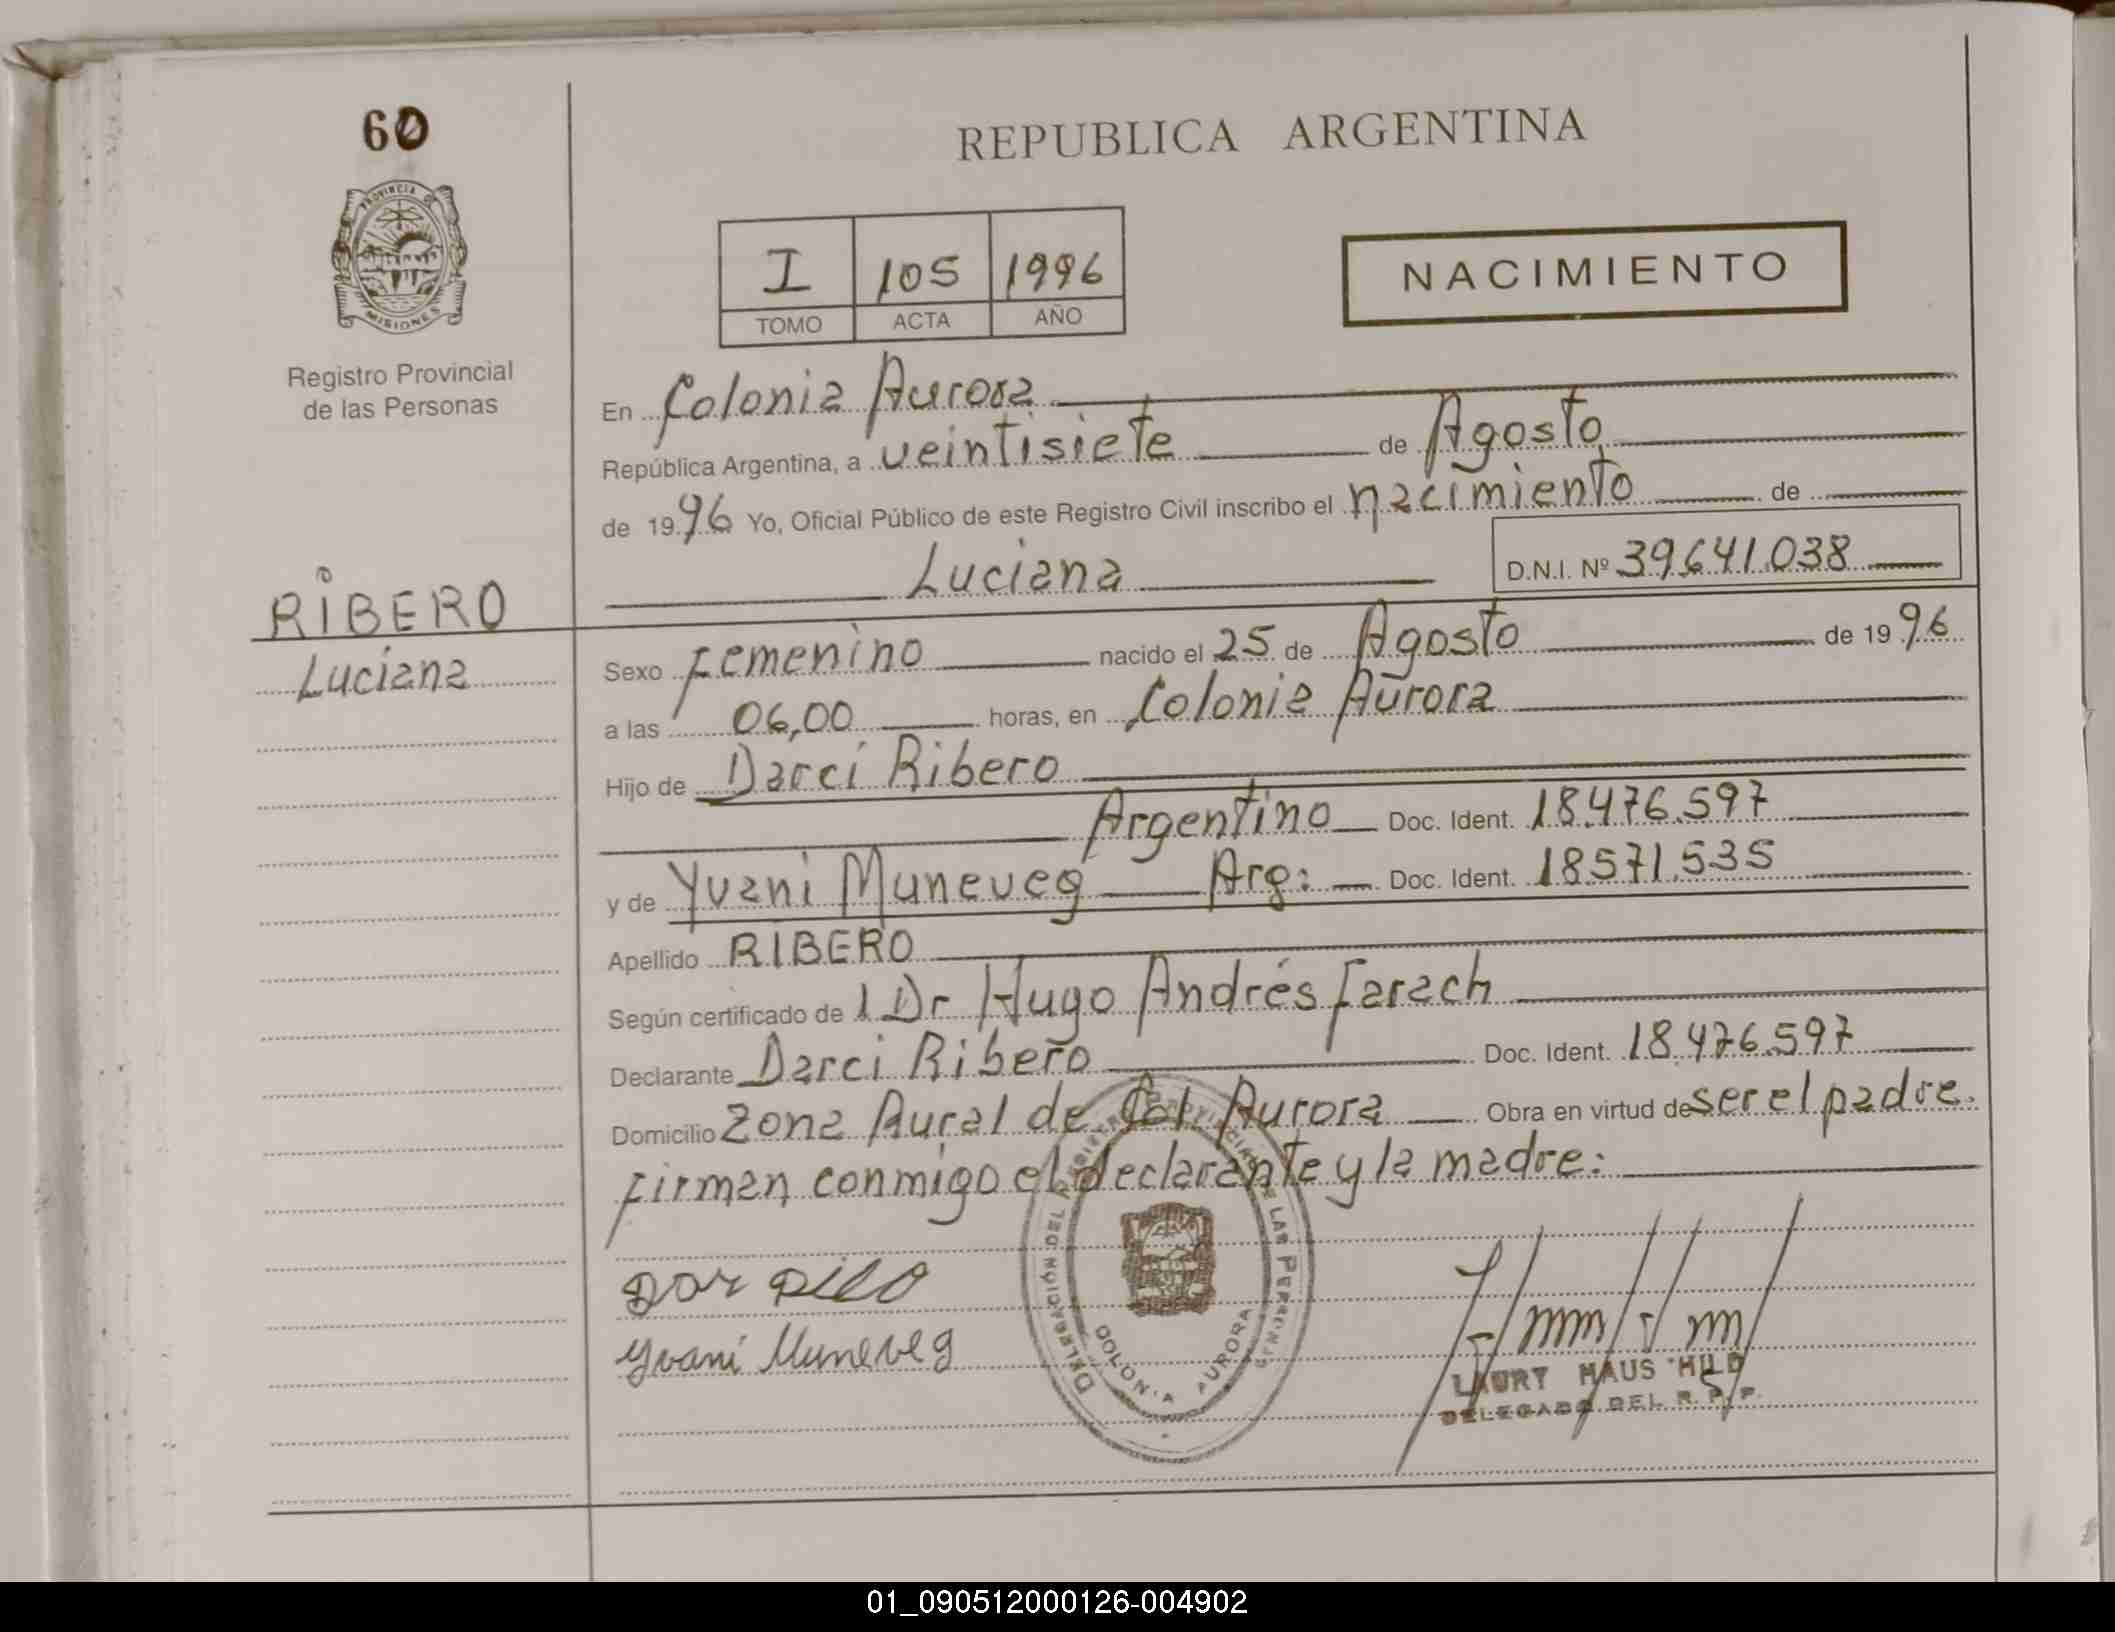 60
PROVINCIA DE
MISIONES
Registro Provincial
de las Personas
RIBERO
Luciana
REPUBLICA ARGENTINA
I 105 1996
TOMO ACTA AÑO
NACIMIENTO
En Colonia Aurora
República Argentina, a veintisiete de Agosto
de 1996 Yo, Oficial Público de este Registro Civil inscribo el nacimiento de
Luciana D.N.I. Nº 39641.038
Sexo Femenino nacido el 25 de Agosto de 1996
a las 06,00 horas, en Colonia Aurora
Hijo de Darci Ribero
Argentino Doc. Ident. 18.476.597
y de Yvani Muneveg Arg: Doc. Ident. 18571.535
Apellido RIBERO
Según certificado de 1 Dr Hugo Andrés Farach
Declarante Darci Ribero Doc. Ident. 18.476.597
Domicilio Zona Rural de Col Aurora Obra en virtud de ser el padre.
Firman conmigo el declarante y la madre:
Yvani Muneveg
DELEGACIÓN DEL REGISTRO PROVINCIAL DE LAS PERSONAS
COLONIA AURORA
LAURY HAUS HILD
DELEGADO DEL R. P. P.
01_090512000126-004902